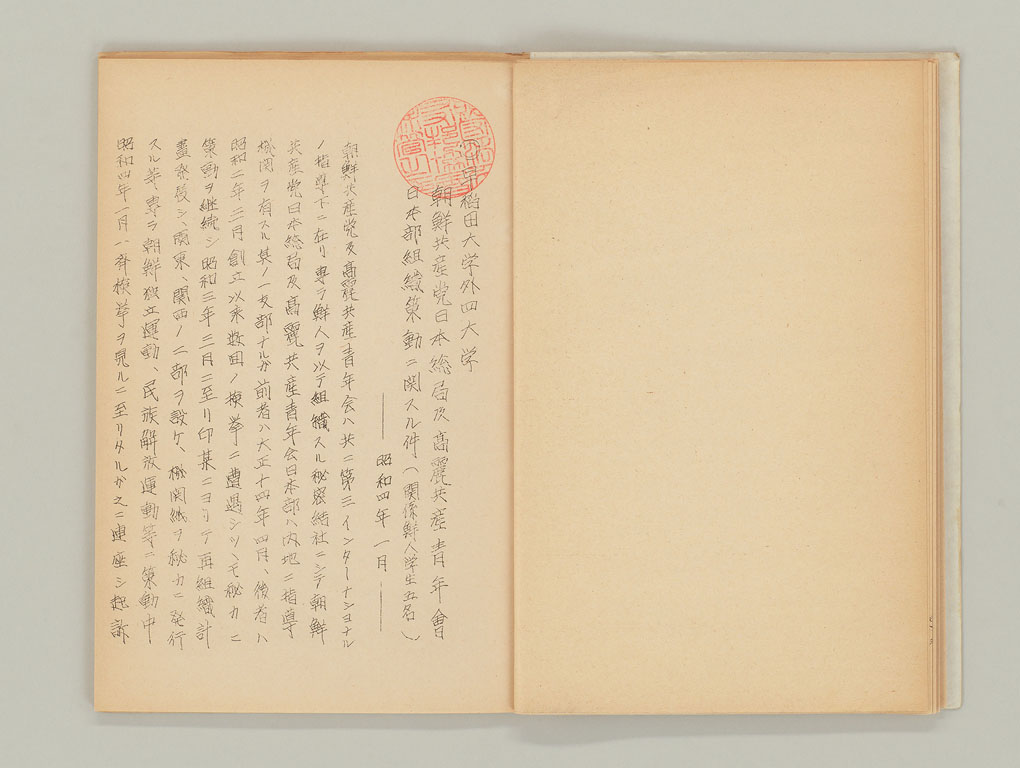 早稲田大学外四大学
朝鮮共産党日本総局及高麗共産青年會
日本部組織策動ニ関スル件(関係鮮人学生五名)
昭和四年一月
朝鮮共産党及高麗共産青年会ハ共ニ第三インターナショナル
ノ指導下ニ在リ専ラ鮮人ヲ以テ組織スル秘密結社ニシテ朝鮮
共産党日本総局及高麗共産青年会日本部ハ内地ニ指導
機関ヲ有スル其ノ一支部ナルガ前者ハ大正十四年四月、後者ハ
昭和二年三月創立以来数囬ノ検挙ニ遭遇シツヽモ秘カニ
策動ヲ継続シ昭和三年三月ニ至リ印某ニヨリテ再組織計
畫来後シ、関東、関西ノ二部ヲ設ケ、機関紙ヲ秘カニ発行
スル等専ラ朝鮮独立運動、民族解放運動等ニ策動中
昭和四年一月一斉検挙ヲ見ルニ至リタルガ之ニ連座シ起訴